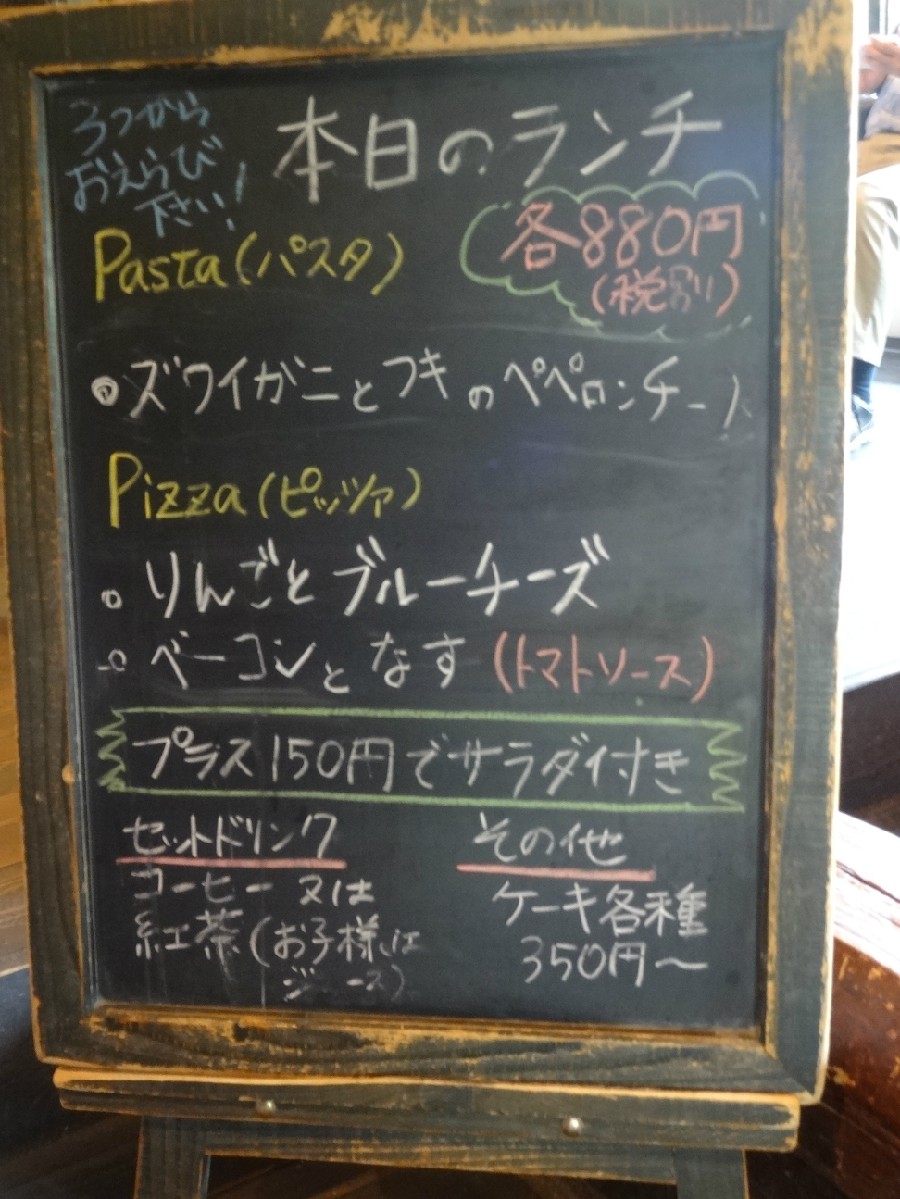 3つから
おえらび
下さい!
本日のランチ
各880円
(税別)
Pasta(パスタ)
・ズワイガニとフキのペペロンチーノ
Pizza(ピッツァ)
・りんごとブルーチーズ
・ベーコンとなす(トマトソース)
プラス150円でサラダイ付き
セットドリンク
コーヒー又は
紅茶(お子様は
ジュース)
その他
ケーキ各種
350円〜